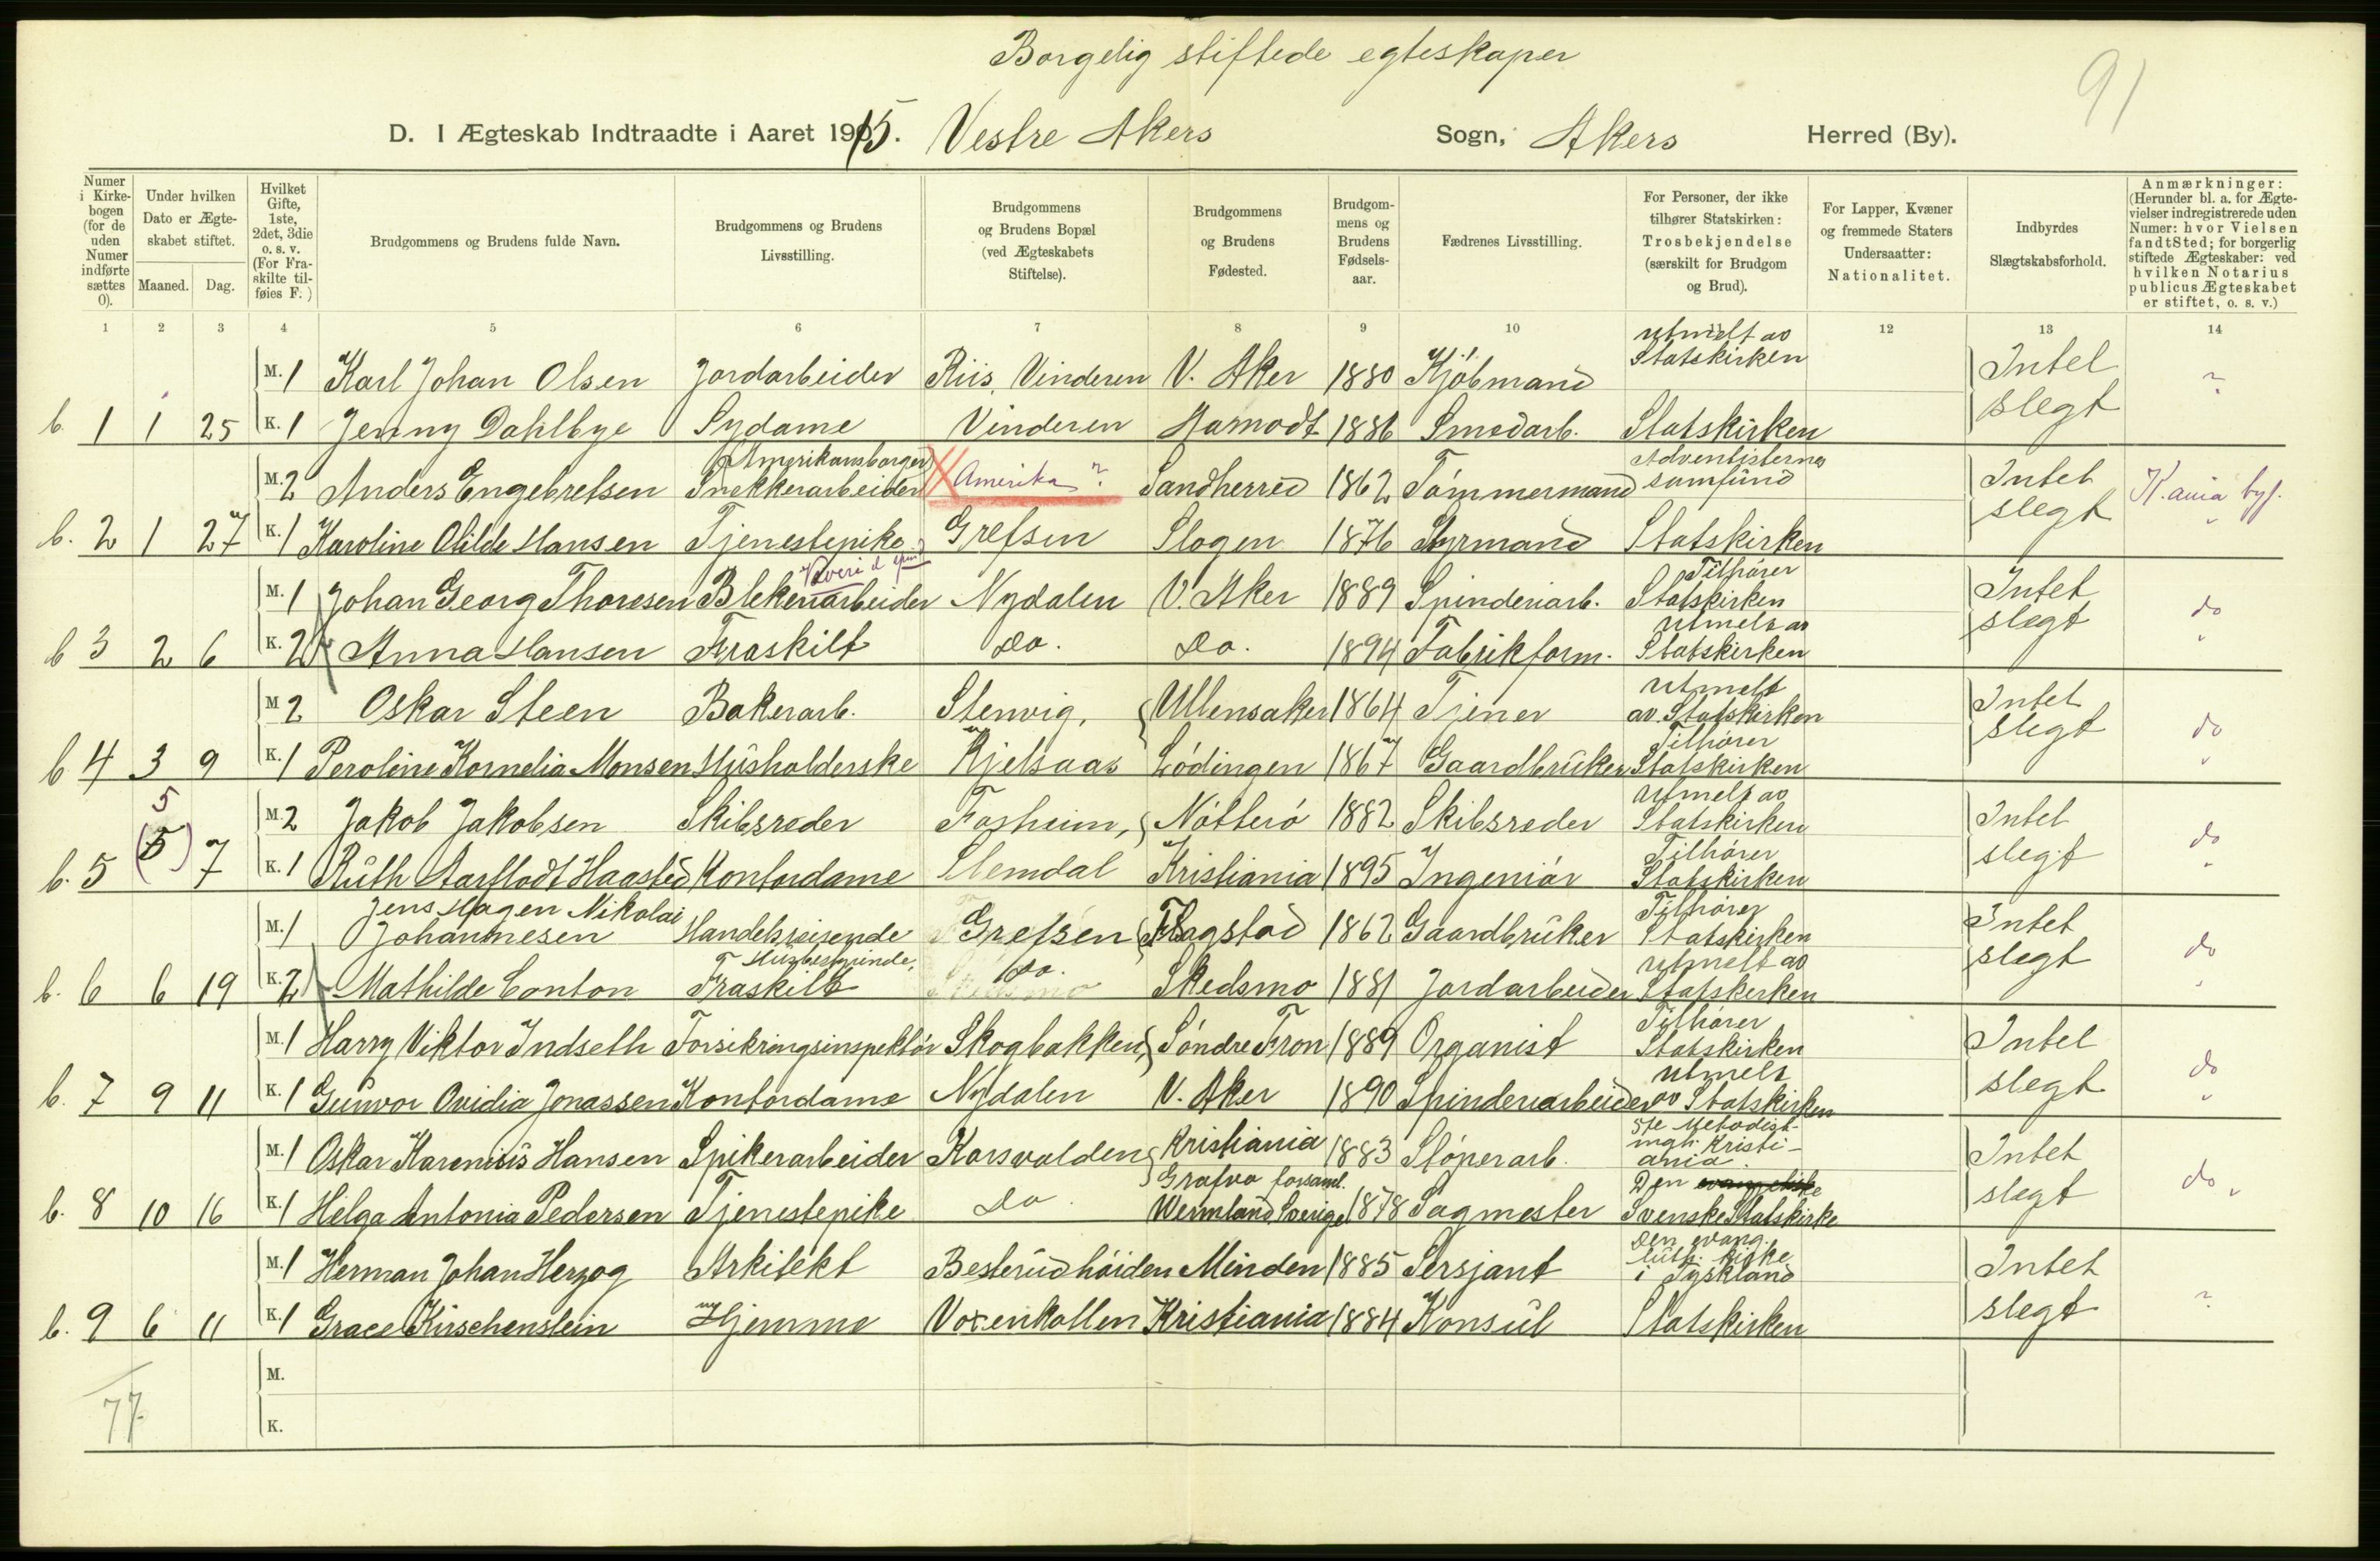 Borgelig stiftede egteskaper
91
D. I Ægteskab Indtraadte i Aaret 1915. Vestre Akers Sogn, Akers Herred (By).
Numer i Kirkebogen (for de uden Numer indførte sættes 0).
Under hvilken Dato er Ægteskabet stiftet.
Maaned. Dag.
Hvilket Gifte, 1ste, 2det, 3die o. s. v. (For Fraskilte tilføies F.)
Brudgommens og Brudens fulde Navn.
Brudgommens og Brudens Livsstilling.
Brudgommens og Brudens Bopæl (ved Ægteskabets Stiftelse).
Brudgommens og Brudens Fødested.
Brudgommens og Brudens Fødselsaar.
Fædrenes Livsstilling.
For Personer, der ikke tilhører Statskirken: Trosbekjendelse (særskilt for Brudgom og Brud).
For Lapper, Kvæner og fremmede Staters Undersaatter: Nationalitet.
Indbyrdes Slægtskabsforhold.
Anmærkninger: (Herunder bl. a. for Ægtevielser indregistrerede uden Numer: hvor Vielsen fandt Sted; for borgerlig stiftede Ægteskaber: ved hvilken Notarius publicus Ægteskabet er stiftet, o. s. v.)
1 2 3 4 5 6 7 8 9 10 11 12 13 14
M. 1 Karl Johan Olsen Jordarbeider Riis, Vinderen V. Aker 1880 Kjøbmand utmelt av Statskirken Intet ?
b. 1 1 25 K. 1 Jenny Dahlbye Sydame Vinderen Marnodt 1886 Smedarb. Statskirken slegt
M. 2 Anders Engebretsen (Amerikansborger) Snekkerarbeider Amerika ? Sandherred 1862 Tømmermand Adventisternes samfund Intet K.ania byf.
b. 2 1 27 K. 1 Karoline Olilde Hansen Tjenestepike Grefsen Slagen 1876 Styrmand Statskirken slegt "
M. 1 Johan Georg Thoresen Blekeriarbeider Nydalen V. Aker 1889 Spinderiarb. Tilhører Statskirken Intet do
b 3 2 6 K. 2 Anna Hansen Fraskilt do. do. 1894 Fabrikform. utmelt av Statskirken slegt "
M 2 Oskar Steen Bakerarb. Stenvig, Ullensaker 1864 Tjener utmelt av Statskirken Intet do
b 4 3 9 K. 1 Peroline Kornelia Monsen Husholderske Kjelsaas Lødingen 1867 Gaardbruker Tilhører Statskirken slegt "
M. 2 Jakob Jakobsen Skibsreder Fagheim, Nøtterø 1882 Skibsreder utmelt av Statskirken Intet do
b. 5 5 (5) 7 K. 1 Ruth Aarflodt Haasted Kontordame Slemdal Kristiania 1895 Ingeniør Tilhører Statskirken slegt "
M. 1 Jens Hagen Nikolai Johannesen Handelsreisende Grefsen Flagstad 1862 Gaardbruker Tilhører Statskirken Intet do
b. 6 6 19 K. 2 Mathilde Conton Husbestyrinde, Fraskilt do. Skedsmo 1881 Jordarbeider utmelt av Statskirken slegt "
M. 1 Harry Viktor Indseth Forsikringsinspektør Skogbakken, Søndre Fron 1889 Organist Tilhører Statskirken Intet do
b. 7 9 11 K. 1 Gunvor Ovidia Jonassen Kontordame Nydalen V. Aker 1890 Spinderiarbeider utmelt av Statskirken slegt "
M. 1 Oskar Karenius Hansen Spikerarbeider Korsvolden Kristiania 1883 Støperarb. 5te Metodist-mgh. Kristiania Intet do "
b. 8 10 16 K. 1 Helga Antonia Pedersen Tjenestepike do Grafva forsaml. Wermland, Sverige 1878 Sagmester Den Svenske Statskirke slegt
M. 1 Herman Johan Herzog Arkitekt Besterudhøiden Minden 1885 Sersjant den evang. luth. kirke i Tyskland Intet ?
b. 9 6 11 K. 1 Grace Kirschenstein Hjemme Voxenkollen Kristiania 1884 Konsul Statskirken slegt
M.
77
K.